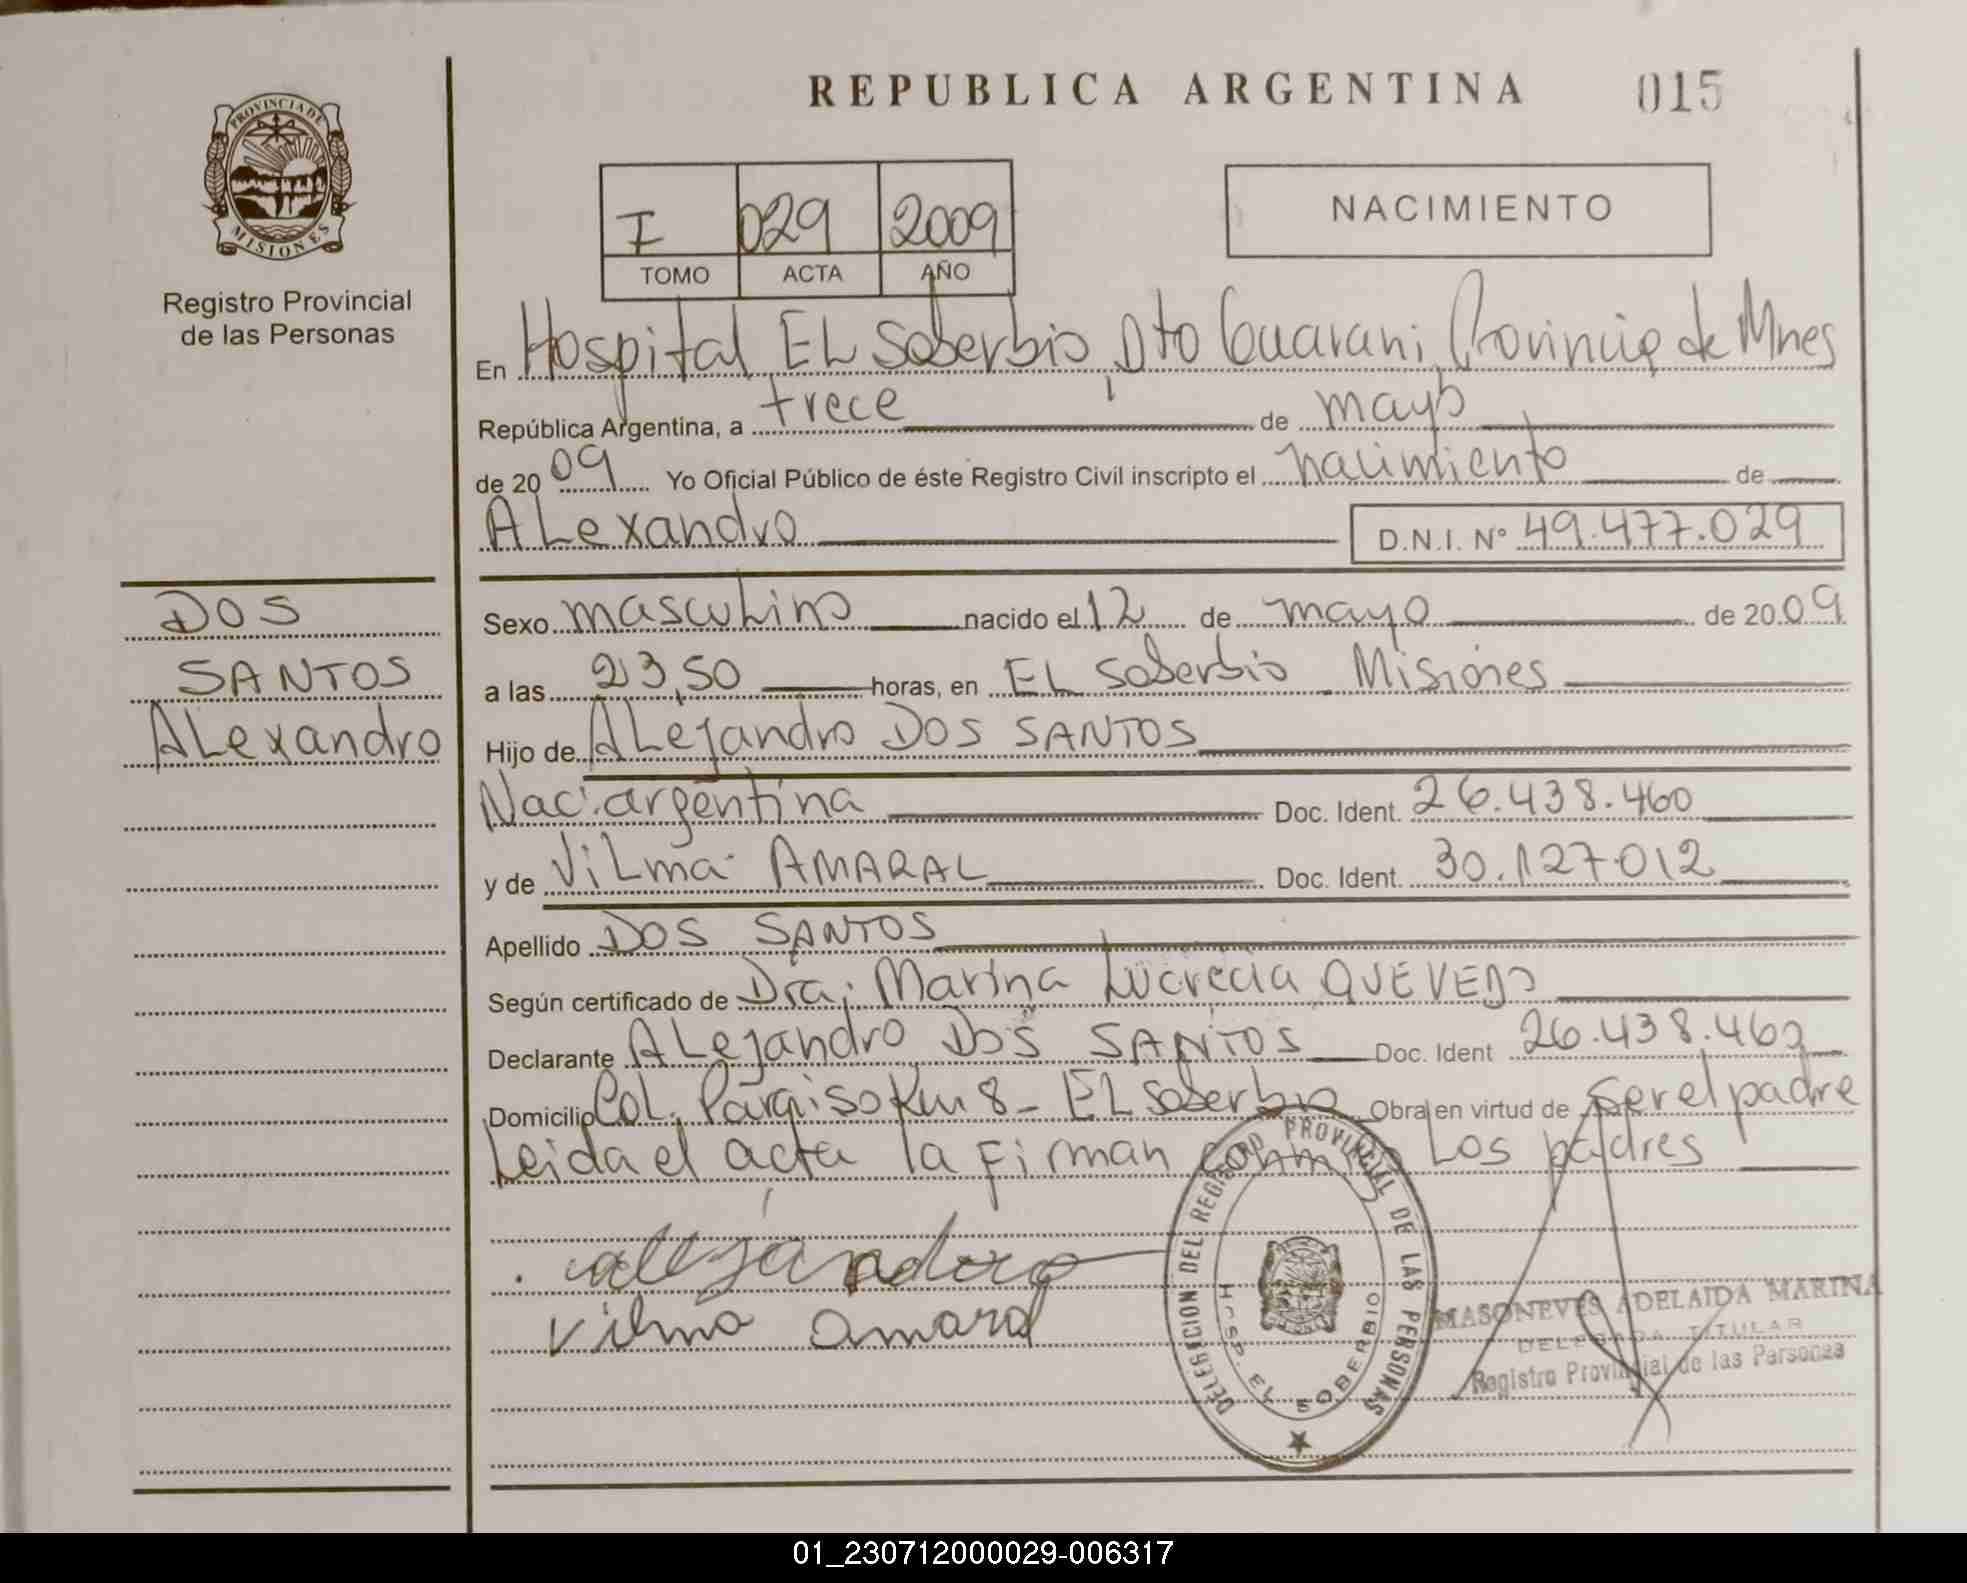 REPUBLICA ARGENTINA 015
PROVINCIA DE
MISIONES
Registro Provincial
de las Personas
I 029 2009
TOMO ACTA AÑO
NACIMIENTO
En Hospital EL Soberbio, Dto Guarani, Provincia de Mnes
República Argentina, a trece de mayo
de 2009 Yo Oficial Público de éste Registro Civil inscripto el nacimiento de
ALexandro D.N.I. N° 49.477.029
DOS
SANTOS
ALexandro
Sexo masculino nacido el 12 de mayo de 2009
a las 23,50 horas, en EL Soberbio Misiones
Hijo de ALejandro DOS SANTOS
Nac. argentina Doc. Ident. 26.438.460
y de ViLma AMARAL Doc. Ident. 30.127.012
Apellido DOS SANTOS
Según certificado de Dra. Marina Lucrecia QUEVEDO
Declarante ALejandro DOS SANTOS Doc. Ident 26.438.460
Domicilio CoL. Paraiso Km 8 - EL Soberbio Obra en virtud de ser el padre
Leida el acta la firman conmigo Los padres
alejandro
vilma amaral
DELEGACION DEL REGISTRO PROVINCIAL DE LAS PERSONAS
HOSP. EL SOBERBIO
MASONEVES ADELAIDA MARINA
DELEGADA TITULAR
Registro Provincial de las Personas
01_230712000029-006317